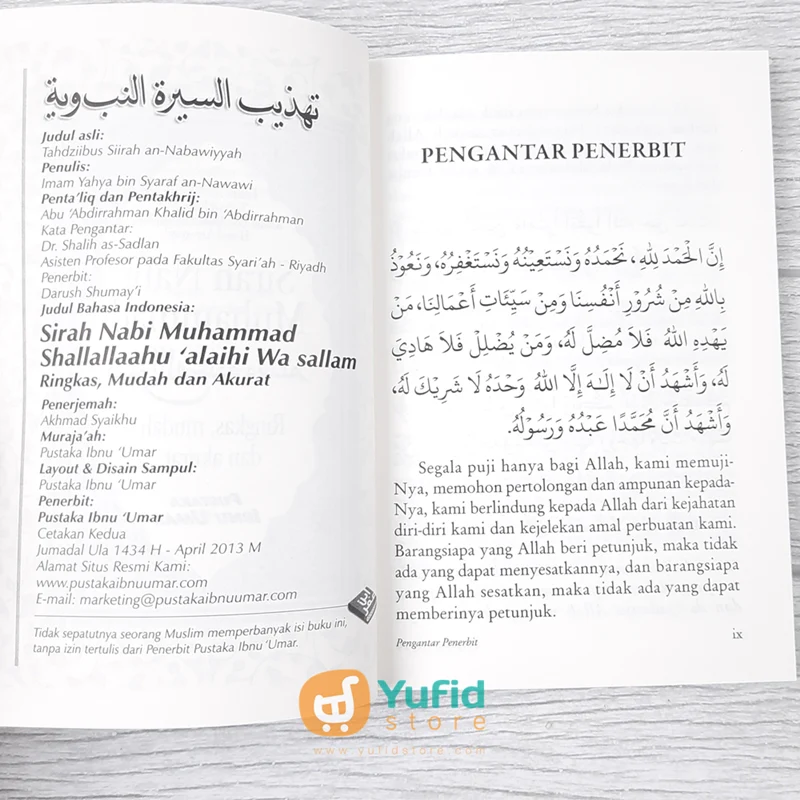 تهذيب السيرة النبوية
Judul asli:
Tahdziibus Siirah an-Nabawiyyah
Penulis:
Imam Yahya bin Syaraf an-Nawawi
Penta'liq dan Pentakhrij:
Abu 'Abdirrahman Khalid bin 'Abdirrahman
Kata Pengantar:
Dr. Shalih as-Sadlan
Asisten Profesor pada Fakultas Syari'ah - Riyadh
Penerbit:
Darush Shumay'i
Judul Bahasa Indonesia:
Sirah Nabi Muhammad
Shallallaahu 'alaihi Wa sallam
Ringkas, Mudah dan Akurat
Penerjemah:
Akhmad Syaikhu
Muraja'ah:
Pustaka Ibnu 'Umar
Layout & Disain Sampul:
Pustaka Ibnu 'Umar
Penerbit:
Pustaka Ibnu 'Umar
Cetakan Kedua
Jumadal Ula 1434 H - April 2013 M
Alamat Situs Resmi Kami:
www.pustakaibnuumar.com
E-mail: marketing@pustakaibnuumar.com
Tidak sepatutnya seorang Muslim memperbanyak isi buku ini,
tanpa izin tertulis dari Penerbit Pustaka Ibnu 'Umar.
PENGANTAR PENERBIT
إِنَّ الْحَمْدَ لِلَّهِ، نَحْمَدُهُ وَنَسْتَعِيْنُهُ وَنَسْتَغْفِرُهُ، وَنَعُوْذُ
بِاللهِ مِنْ شُرُوْرِ أَنْفُسِنَا وَمِنْ سَيِّئَاتِ أَعْمَالِنَا، مَنْ
يَهْدِهِ اللهُ فَلَا مُضِلَّ لَهُ، وَمَنْ يُضْلِلْ فَلَا هَادِيَ
لَهُ، وَأَشْهَدُ أَنْ لَا إِلٰهَ إِلَّا اللهُ وَحْدَهُ لَا شَرِيْكَ لَهُ،
وَأَشْهَدُ أَنَّ مُحَمَّدًا عَبْدُهُ وَرَسُوْلُهُ.
Segala puji hanya bagi Allah, kami memuji-
Nya, memohon pertolongan dan ampunan kepada-
Nya, kami berlindung kepada Allah dari kejahatan
diri-diri kami dan kejelekan amal perbuatan kami.
Barangsiapa yang Allah beri petunjuk, maka tidak
ada yang dapat menyesatkannya, dan barangsiapa
yang Allah sesatkan, maka tidak ada yang dapat
memberinya petunjuk.
Pengantar Penerbit
ix
Yufid
store
www.yufidstore.com